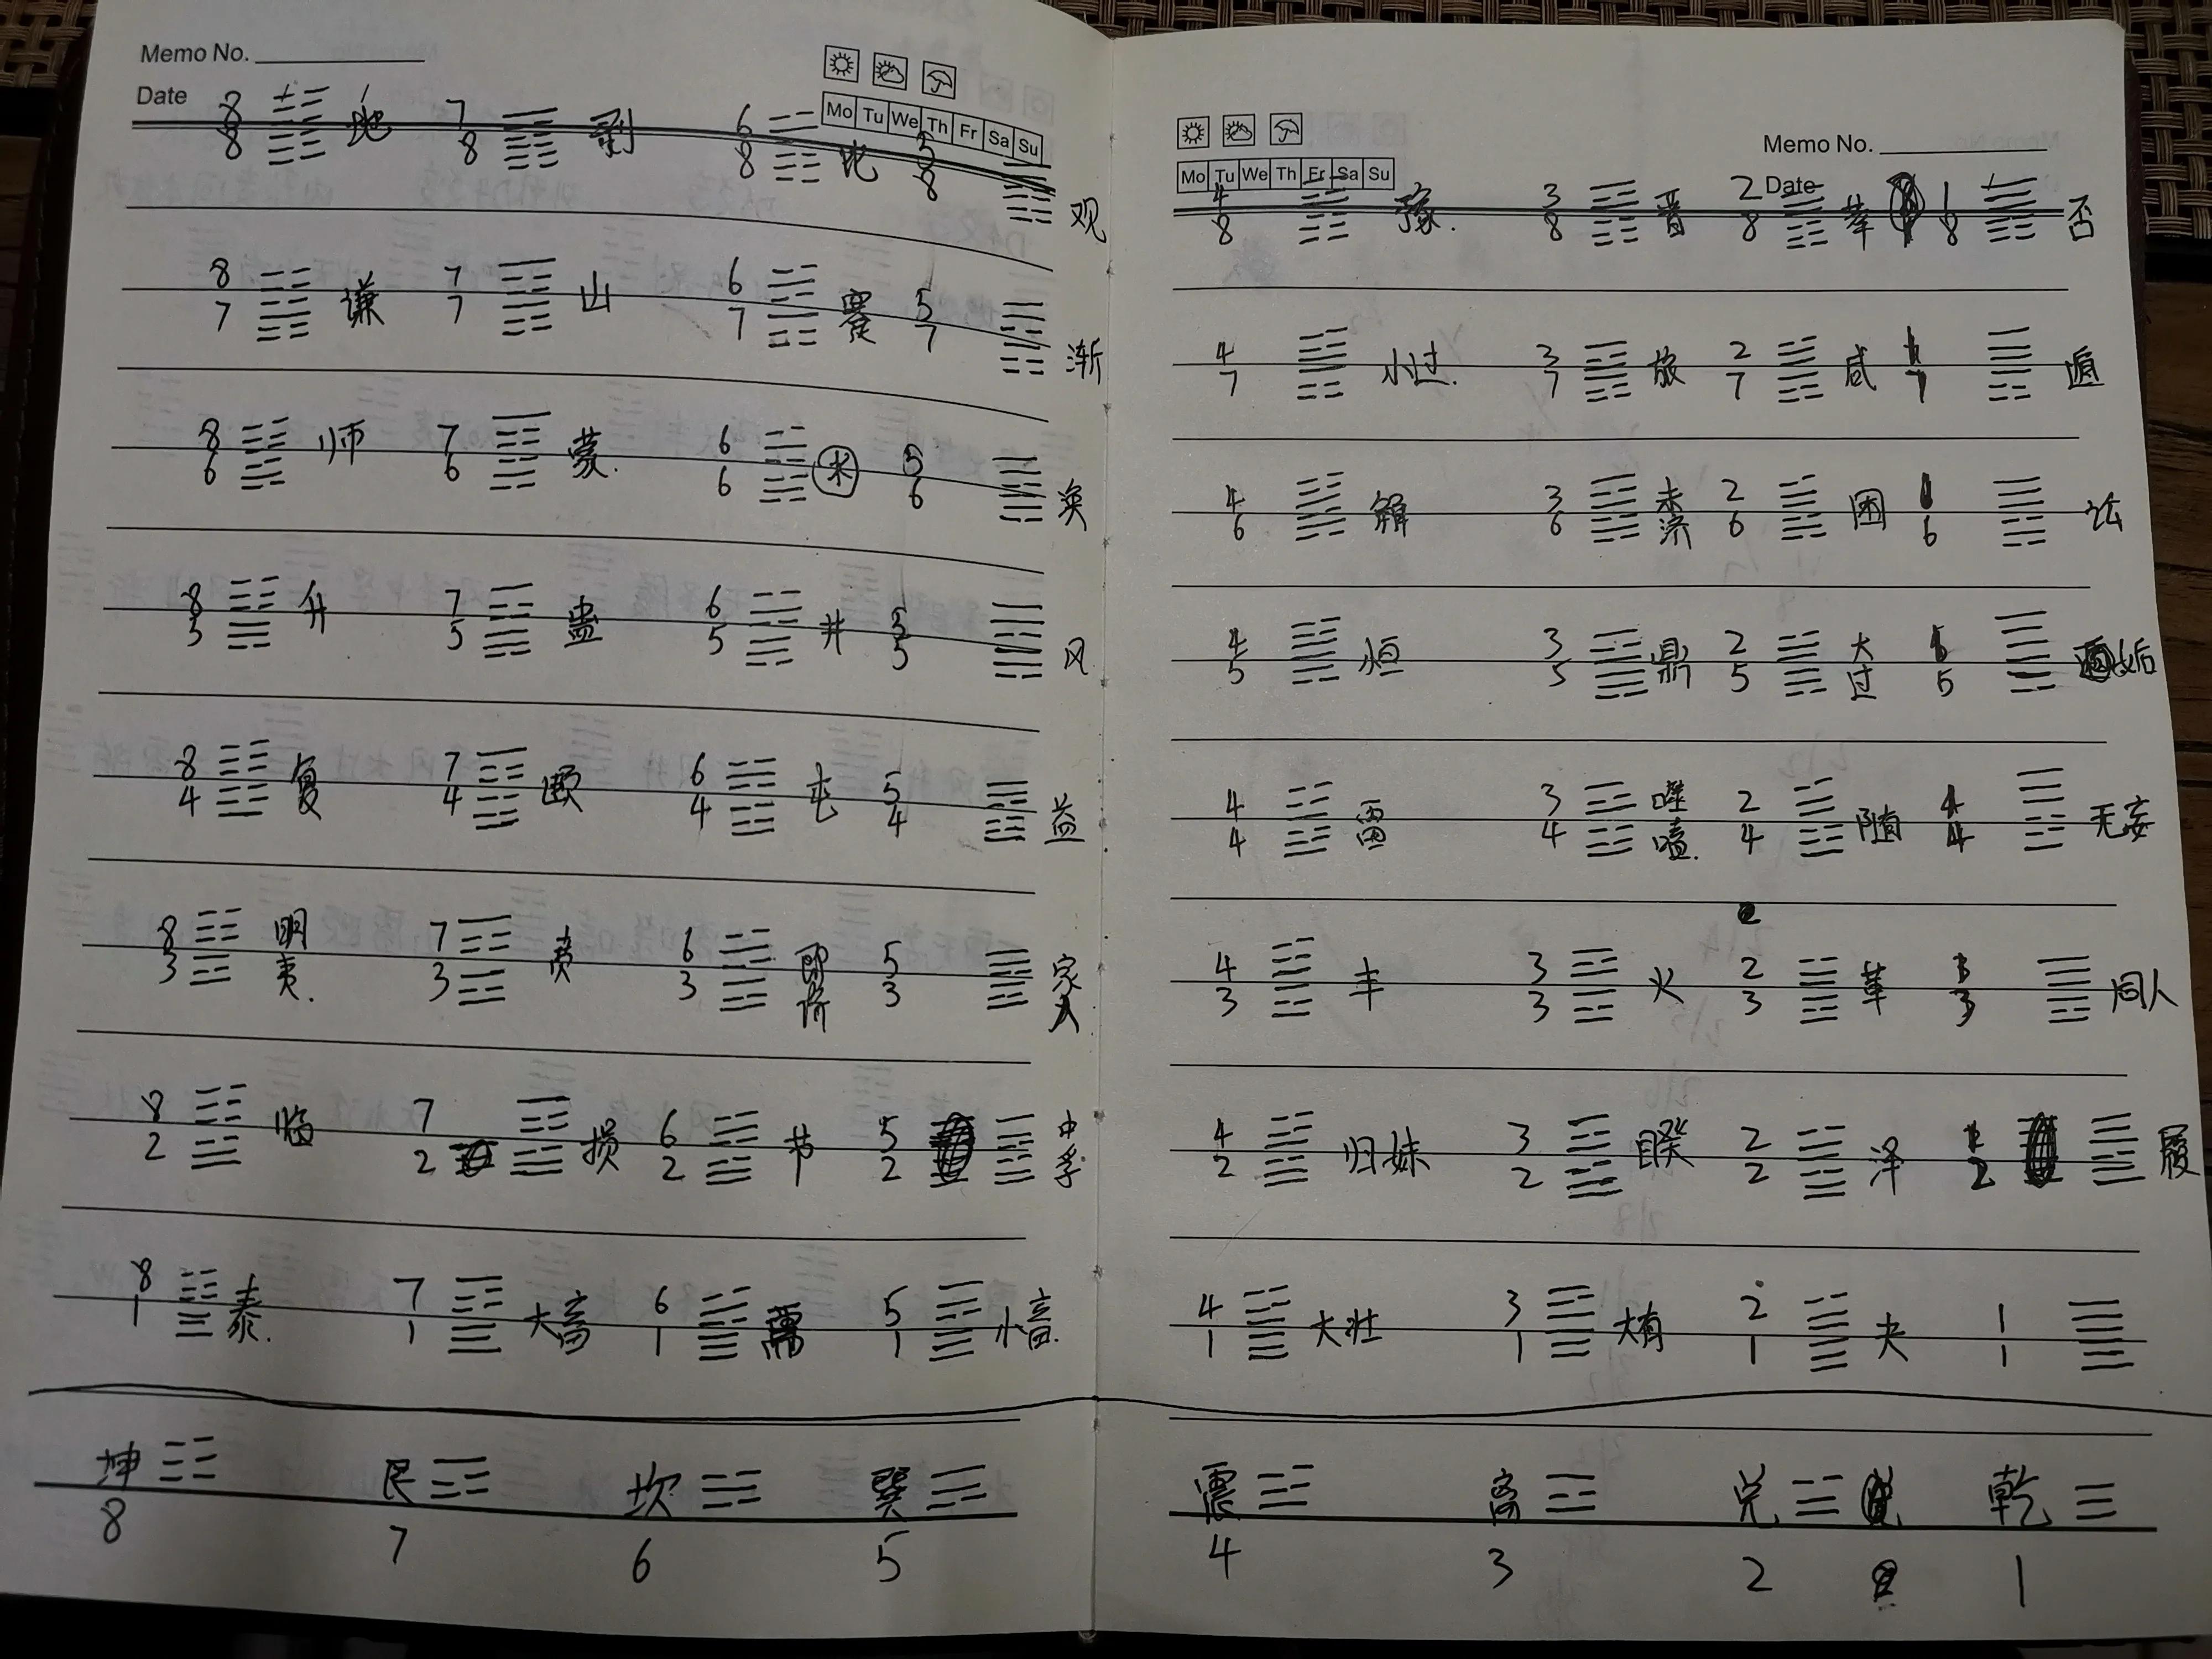 Memo No.
Date
Mo Tu We Th Fr Sa Su
8 8 地 7 8 剥 6 8 比 5 8 观
8 7 谦 7 7 山 6 7 蹇 5 7 渐
8 6 师 7 6 蒙. 6 6 水 5 6 涣
8 5 升 7 5 蛊 6 5 井 5 5 风
8 4 复 7 4 颐 6 4 屯 5 4 益
8 3 明夷. 7 3 贲 6 3 即济 5 3 家人
8 2 临 7 2 损 6 2 节 5 2 中孚
8 1 泰. 7 1 大畜 6 1 需 5 1 小畜.
坤 艮 坎 巽
8 7 6 5
Memo No.
Date
Mo Tu We Th Fr Sa Su
4 8 豫. 3 8 晋 2 8 萃 1 8 否
4 7 小过. 3 7 旅 2 7 咸 1 7 遁
4 6 解 3 6 未济 2 6 困 1 6 讼
4 5 恒 3 5 鼎 2 5 大过 1 5 姤
4 4 雷 3 4 噬嗑. 2 4 随 1 4 无妄
4 3 丰 3 3 火 2 3 革 1 3 同人
4 2 归妹 3 2 睽 2 2 泽 1 2 履
4 1 大壮 3 1 大有 2 1 夬 1 1
震 离 兑 乾
4 3 2 1